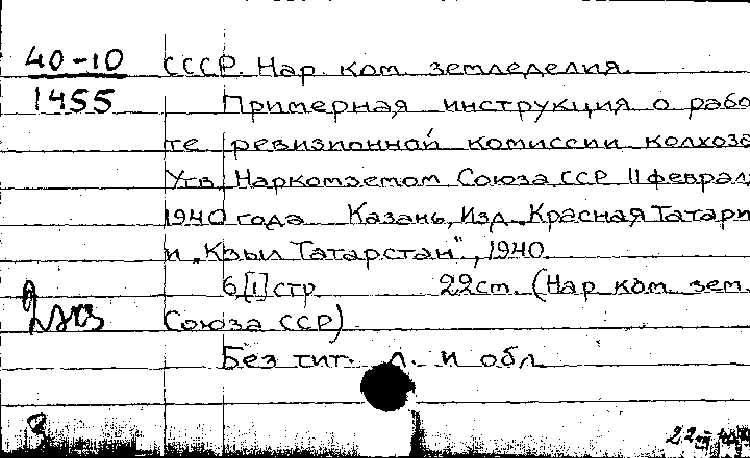 40-10
1455
СССР. Нар. ком. земледелия.
Примерная инструкция о рабо
те ревизионной комиссии колхоза
Утв. Наркомземом Союза ССР 11 феврал
1940 года Казань, Изд. „Красная Татари
и „Кзыл Татарстан", 1940.
6 [1] стр. 22см. (Нар. ком. зем.
Союза ССР)
Без тит. л. и обл.
2экз